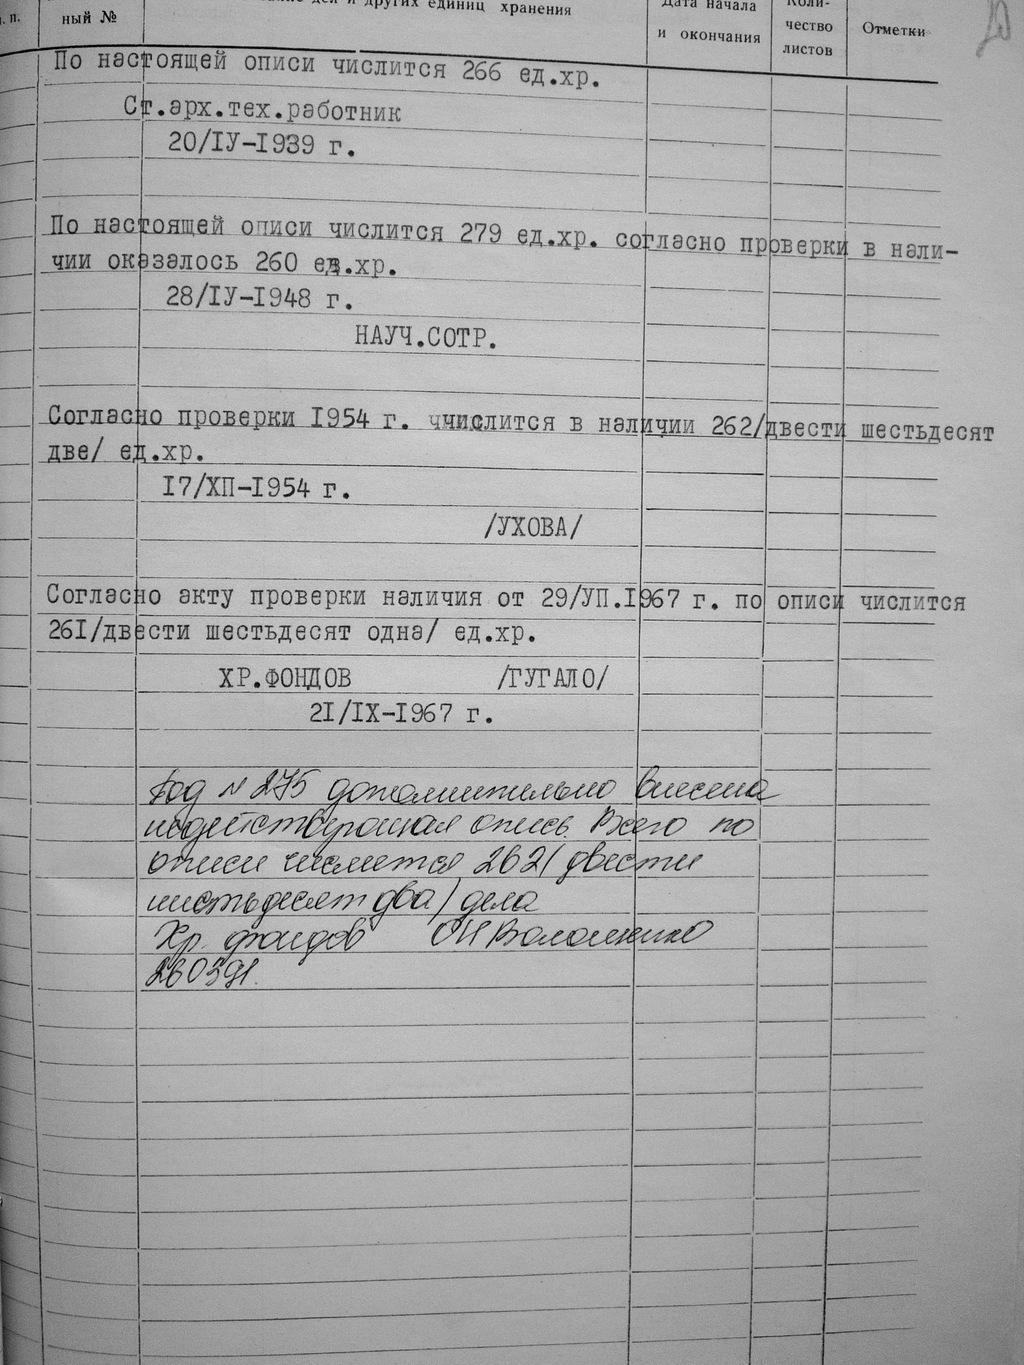 . п.
ный №
дел и других единиц хранения
Дата начала
и окончания
Коли-
чество
листов
Отметки
По настоящей описи числится 266 ед.хр.
Ст.арх.тех.работник
20/IУ-I939 г.
По настоящей описи числится 279 ед.хр. согласно проверки в нали-
чии оказалось 260 ед.хр.
28/IУ-I948 г.
НАУЧ.СОТР.
Согласно проверки I954 г. ччислится в наличии 262/двести шестьдесят
две/ ед.хр.
I7/ХП-I954 г.
/УХОВА/
Согласно акту проверки наличия от 29/УП.I967 г. по описи числится
26I/двести шестьдесят одна/ ед.хр.
ХР.ФОНДОВ /ГУГАЛО/
2I/IХ-I967 г.
Под № 275 дополнительно внесена
недействующая опись. Всего по
описи числится 262/двести
шестьдесят два/ дела
Хр. фондов
260391.